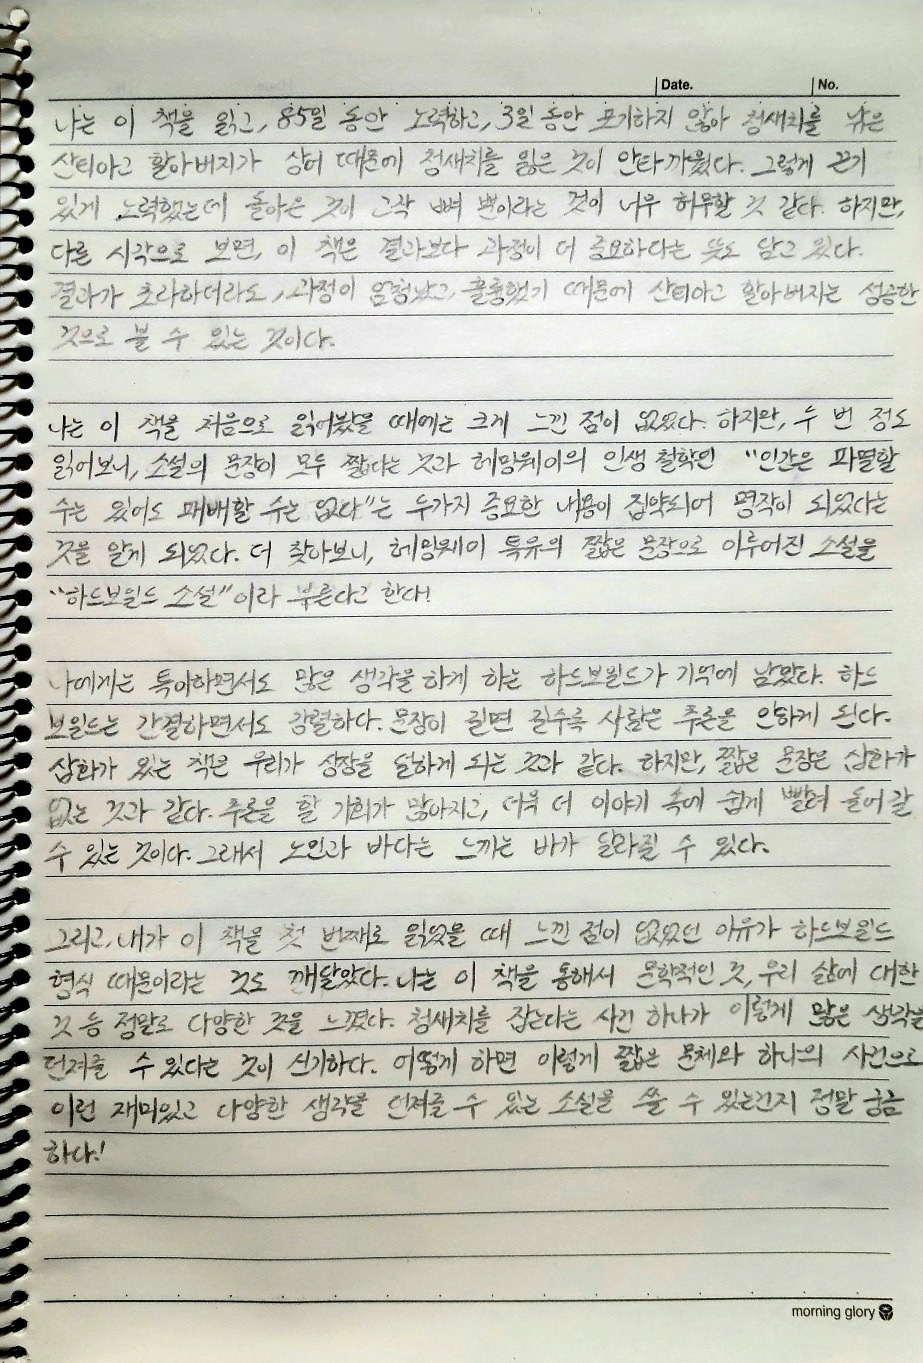 Date. No.
나는 이 책을 읽고, 85일 동안 노력하고, 3일 동안 포기하지 않아 청새치를 낚은
산티아고 할아버지가 상어 때문에 청새치를 잃은 것이 안타까웠다. 그렇게 끈기
있게 노력했는데 돌아온 것이 고작 뼈 뿐이라는 것이 너무 허무할 것 같다. 하지만,
다른 시각으로 보면, 이 책은 결과보다 과정이 더 중요하다는 뜻도 담고 있다.
결과가 초라하더라도, 과정이 엄청났고, 훌륭했기 때문에 산티아고 할아버지는 성공한
것으로 볼 수 있는 것이다.
나는 이 책을 처음으로 읽어봤을 때에는 크게 느낀 점이 없었다. 하지만, 두 번 정도
읽어보니, 소설의 문장이 모두 짧다는 것과 헤밍웨이의 인생 철학인 "인간은 파멸할
수는 있어도 패배할 수는 없다"는 두가지 중요한 내용이 집약되어 명작이 되었다는
것을 알게 되었다. 더 찾아보니, 헤밍웨이 특유의 짧은 문장으로 이루어진 소설을
"하드보일드 소설"이라 부른다고 한다!
나에게는 특이하면서도 많은 생각을 하게 하는 하드보일드가 기억에 남았다. 하드
보일드는 간결하면서도 강렬하다. 문장이 길면 길수록 사람은 추론을 안하게 된다.
삽화가 있는 책은 우리가 상상을 덜하게 되는 것과 같다. 하지만, 짧은 문장은 삽화가
없는 것과 같다. 추론을 할 기회가 많아지고, 더욱 더 이야기 속에 쉽게 빨려 들어갈
수 있는 것이다. 그래서 노인과 바다는 느끼는 바가 달라질 수 있다.
그리고, 내가 이 책을 첫 번째로 읽었을 때 느낀 점이 없었던 이유가 하드보일드
형식 때문이라는 것도 깨달았다. 나는 이 책을 통해서 문학적인 것, 우리 삶에 대한
것 등 정말로 다양한 것을 느꼈다. 청새치를 잡는다는 사건 하나가 이렇게 많은 생각을
던져줄 수 있다는 것이 신기하다. 어떻게 하면 이렇게 짧은 문체와 하나의 사건으로
이런 재미있고 다양한 생각을 던져줄 수 있는 소설을 쓸 수 있는건지 정말 궁금
하다!
morning glory